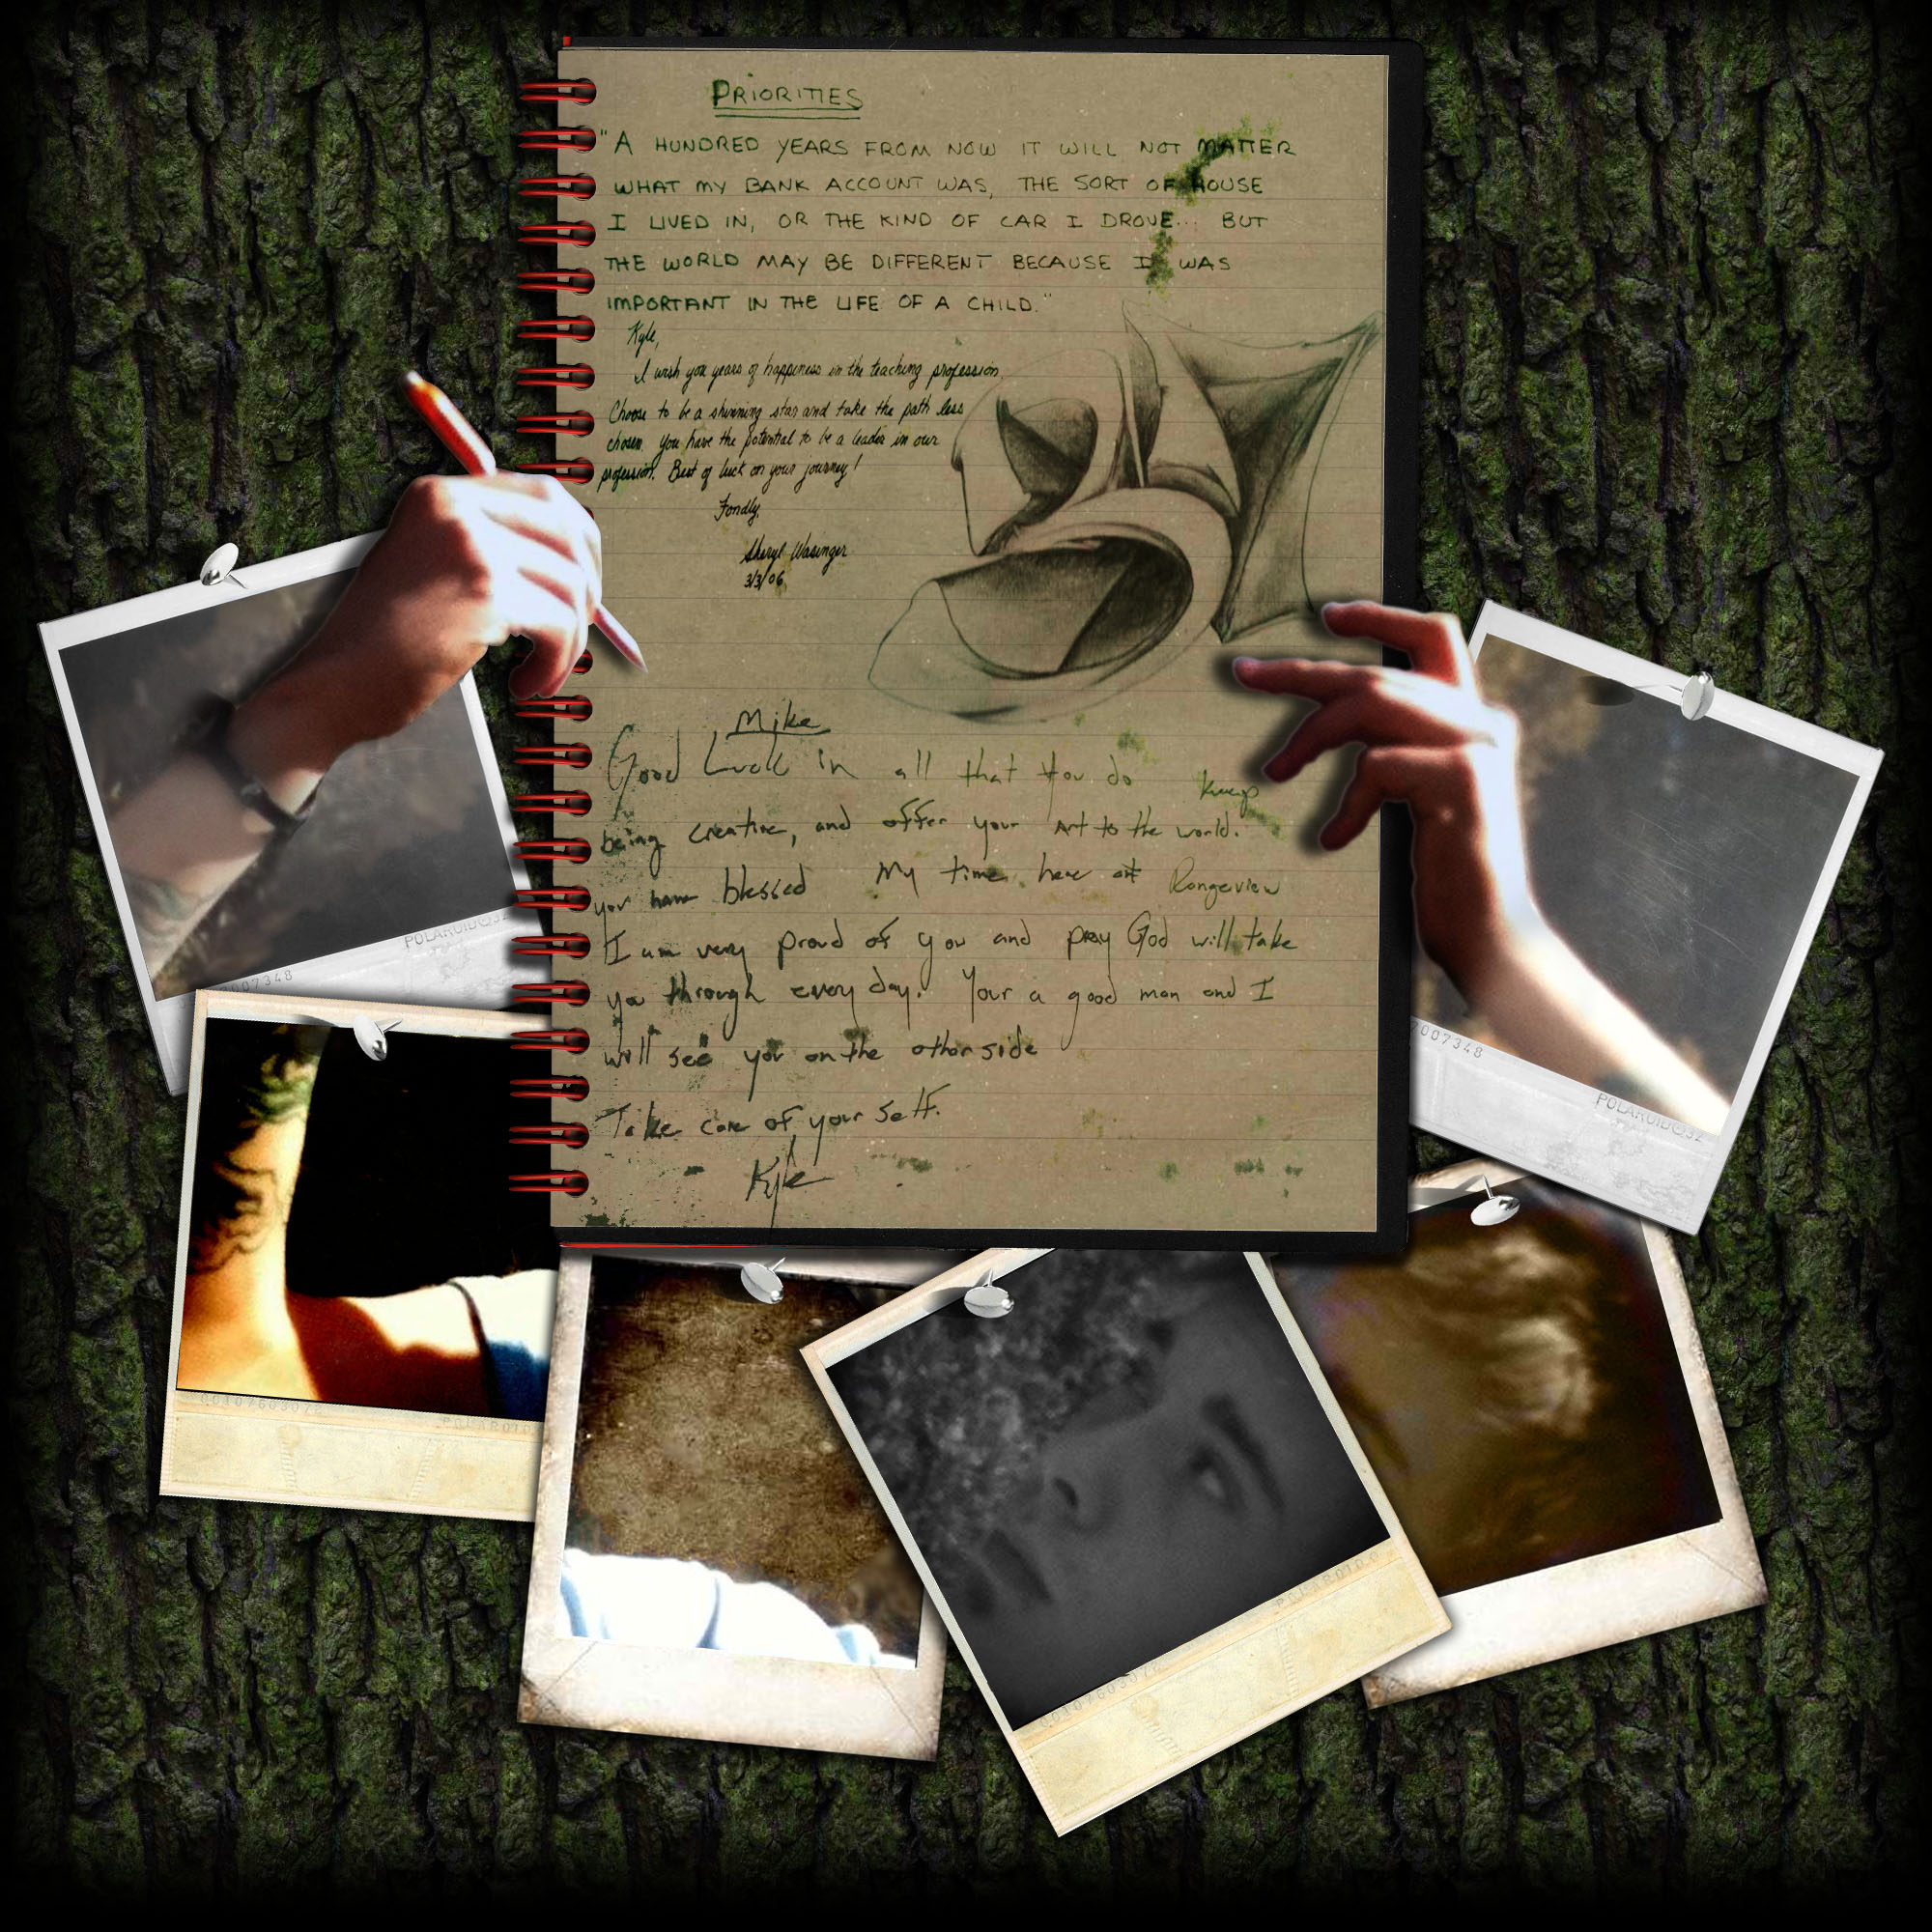 PRIORITIES
"A HUNDRED YEARS FROM NOW IT WILL NOT MATTER
WHAT MY BANK ACCOUNT WAS, THE SORT OF HOUSE
I LIVED IN, OR THE KIND OF CAR I DROVE... BUT
THE WORLD MAY BE DIFFERENT BECAUSE I WAS
IMPORTANT IN THE LIFE OF A CHILD."
Kyle,
I wish you years of happiness in the teaching profession.
Choose to be a shinning star and take the path less
chosen. You have the potential to be a leader in our
profession. Best of luck on your journey!
Fondly,
Sheryl Wasinger
3/3/06
Mike
Good Luck in all that you do Keep
being creative, and offer your Art to the world.
you have blessed My time here at Rangeview
I am very proud of you and pray God will take
you through every day. Your a good man and I
will see you on the other side
Take care of your self.
Kyle
POLAROID
007348
007348
POLAROID
POLAROID
POLAROID